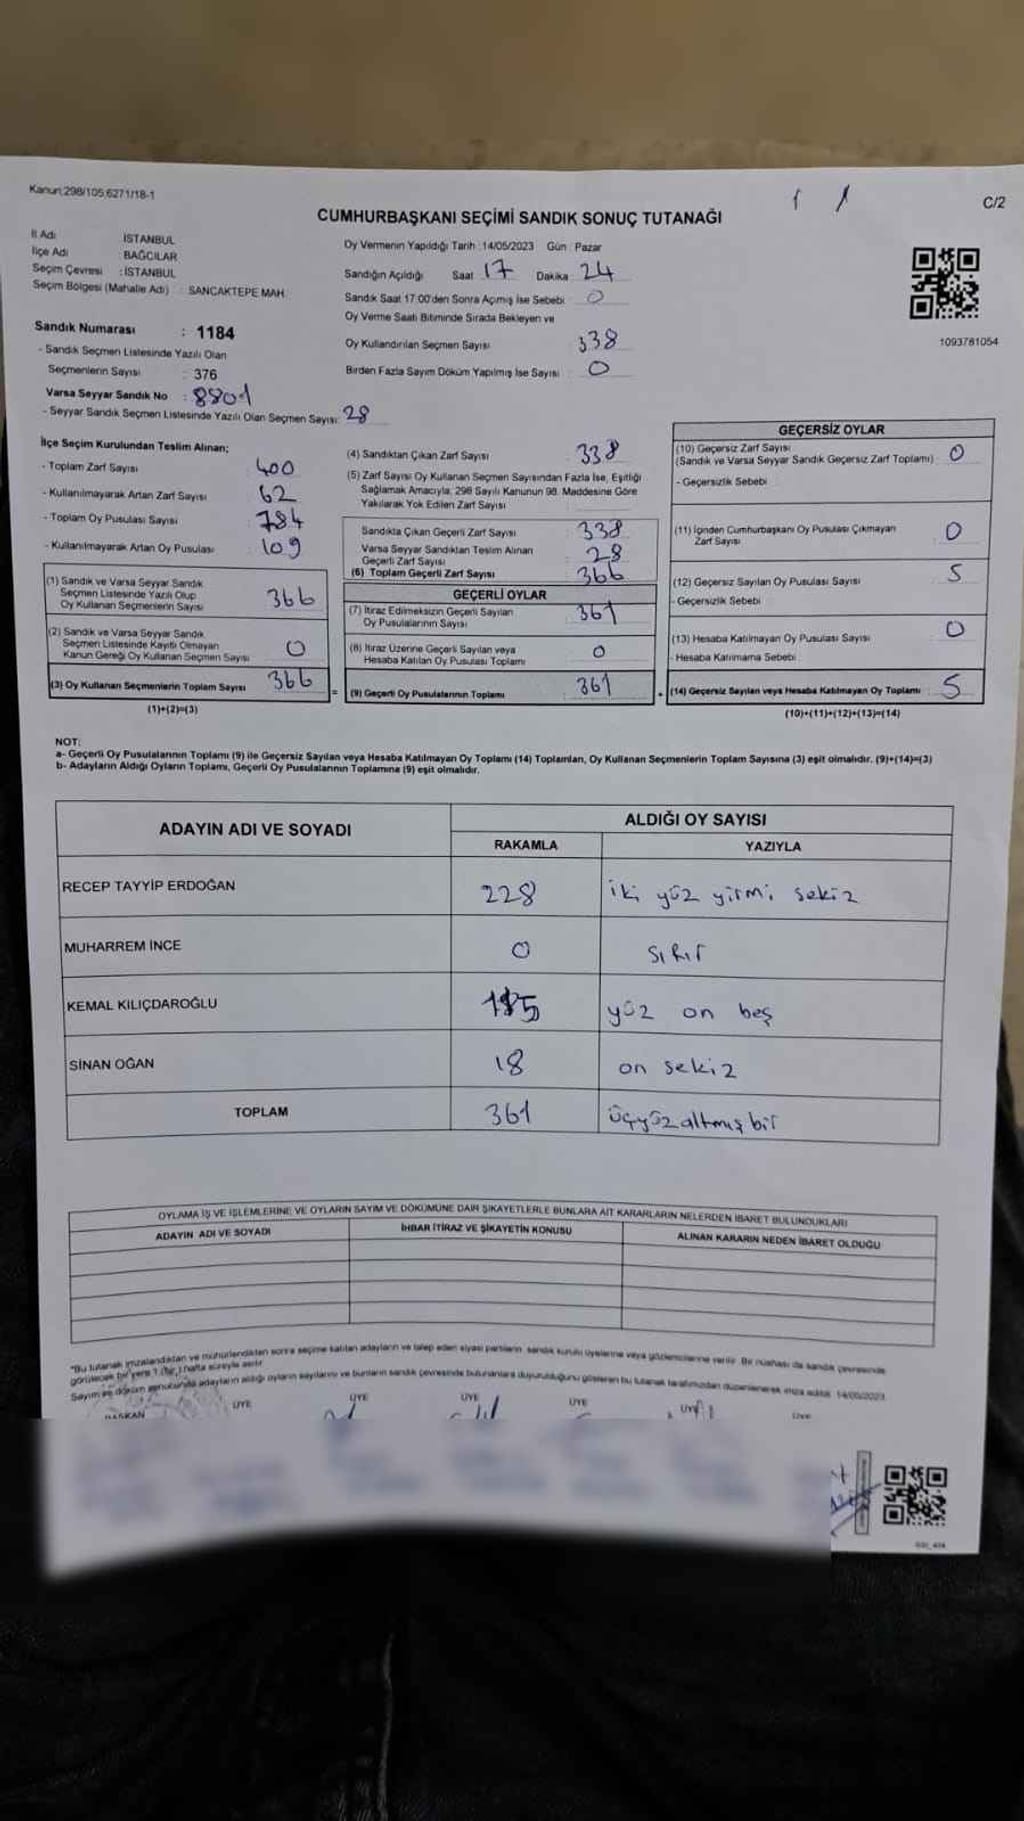 Kanun;298/105,6271/18-1
C/2
CUMHURBAŞKANI SEÇİMİ SANDIK SONUÇ TUTANAĞI
İl Adı İSTANBUL
İlçe Adı BAĞCILAR
Seçim Çevresi : İSTANBUL
Seçim Bölgesi (Mahalle Adı) : SANCAKTEPE MAH.
Sandık Numarası : 1184
- Sandık Seçmen Listesinde Yazılı Olan
Seçmenlerin Sayısı : 376
Varsa Seyyar Sandık No : 8801
- Seyyar Sandık Seçmen Listesinde Yazılı Olan Seçmen Sayısı: 28
Oy Vermenin Yapıldığı Tarih : 14/05/2023 Gün : Pazar
Sandığın Açıldığı Saat 17 Dakika 24
Sandık Saat 17:00'den Sonra Açımış İse Sebebi : 0
Oy Verme Saati Bitiminde Sırada Bekleyen ve
Oy Kullandırılan Seçmen Sayısı 338
Birden Fazla Sayım Döküm Yapılmış İse Sayısı : 0
1093781054
İlçe Seçim Kurulundan Teslim Alınan;
- Toplam Zarf Sayısı 400
- Kullanılmayarak Artan Zarf Sayısı 62
- Toplam Oy Pusulası Sayısı 784
- Kullanılmayarak Artan Oy Pusulası 109
(1) Sandık ve Varsa Seyyar Sandık
Seçmen Listesinde Yazılı Olup
Oy Kullanan Seçmenlerin Sayısı 366
(2) Sandık ve Varsa Seyyar Sandık
Seçmen Listesinde Kayıtlı Olmayan
Kanun Gereği Oy Kullanan Seçmen Sayısı 0
(3) Oy Kullanan Seçmenlerin Toplam Sayısı 366
(1)+(2)=(3)
(4) Sandıktan Çıkan Zarf Sayısı 338
(5) Zarf Sayısı Oy Kullanan Seçmen Sayısından Fazla İse, Eşitliği
Sağlamak Amacıyla; 298 Sayılı Kanunun 98. Maddesine Göre
Yakılarak Yok Edilen Zarf Sayısı
Sandıkta Çıkan Geçerli Zarf Sayısı 338
Varsa Seyyar Sandıktan Teslim Alınan
Geçerli Zarf Sayısı 28
(6) Toplam Geçerli Zarf Sayısı 366
GEÇERLİ OYLAR
(7) İtiraz Edilmeksizin Geçerli Sayılan
Oy Pusulalarının Sayısı 361
(8) İtiraz Üzerine Geçerli Sayılan veya
Hesaba Katılan Oy Pusulası Toplamı 0
= (9) Geçerli Oy Pusulalarının Toplamı 361
GEÇERSİZ OYLAR
(10) Geçersiz Zarf Sayısı
(Sandık ve Varsa Seyyar Sandık Geçersiz Zarf Toplamı) 0
- Geçersizlik Sebebi
(11) İçinden Cumhurbaşkanı Oy Pusulası Çıkmayan
Zarf Sayısı 0
(12) Geçersiz Sayılan Oy Pusulası Sayısı 5
- Geçersizlik Sebebi
(13) Hesaba Katılmayan Oy Pusulası Sayısı 0
- Hesaba Katılmama Sebebi
+ (14) Geçersiz Sayılan veya Hesaba Katılmayan Oy Toplamı 5
(10)+(11)+(12)+(13)=(14)
NOT:
a- Geçerli Oy Pusulalarının Toplamı (9) ile Geçersiz Sayılan veya Hesaba Katılmayan Oy Toplamı (14) Toplamları, Oy Kullanan Seçmenlerin Toplam Sayısına (3) eşit olmalıdır. (9)+(14)=(3)
b- Adayların Aldığı Oyların Toplamı, Geçerli Oy Pusulalarının Toplamına (9) eşit olmalıdır.
ADAYIN ADI VE SOYADI
ALDIĞI OY SAYISI
RAKAMLA YAZIYLA
RECEP TAYYİP ERDOĞAN 228 iki yüz yirmi sekiz
MUHARREM İNCE 0 sıfır
KEMAL KILIÇDAROĞLU 115 yüz on beş
SİNAN OĞAN 18 on sekiz
TOPLAM 361 üçyüzaltmışbir
OYLAMA İŞ VE İŞLEMLERİNE VE OYLARIN SAYIM VE DÖKÜMÜNE DAİR ŞİKAYETLERLE BUNLARA AİT KARARLARIN NELERDEN İBARET BULUNDUKLARI
ADAYIN ADI VE SOYADI İHBAR İTİRAZ VE ŞİKAYETİN KONUSU ALINAN KARARIN NEDEN İBARET OLDUĞU
*Bu tutanak imzalandıktan ve mühürlendikten sonra seçime katılan adayların ve talep eden siyasi partilerin sandık kurulu üyelerine veya gözlemcilerine verilir. Bir nüshası da sandık çevresinde
görülecek bir yere 1 (bir) hafta süreyle asılır.
Sayım ve döküm sonucunda adayların aldığı oyların sayılarını ve bunların sandık çevresinde bulunanlara duyurulduğunu gösteren bu tutanak tarafımızdan düzenlenerek imza edildi. 14/05/2023
BAŞKAN ÜYE ÜYE ÜYE ÜYE ÜYE ÜYE